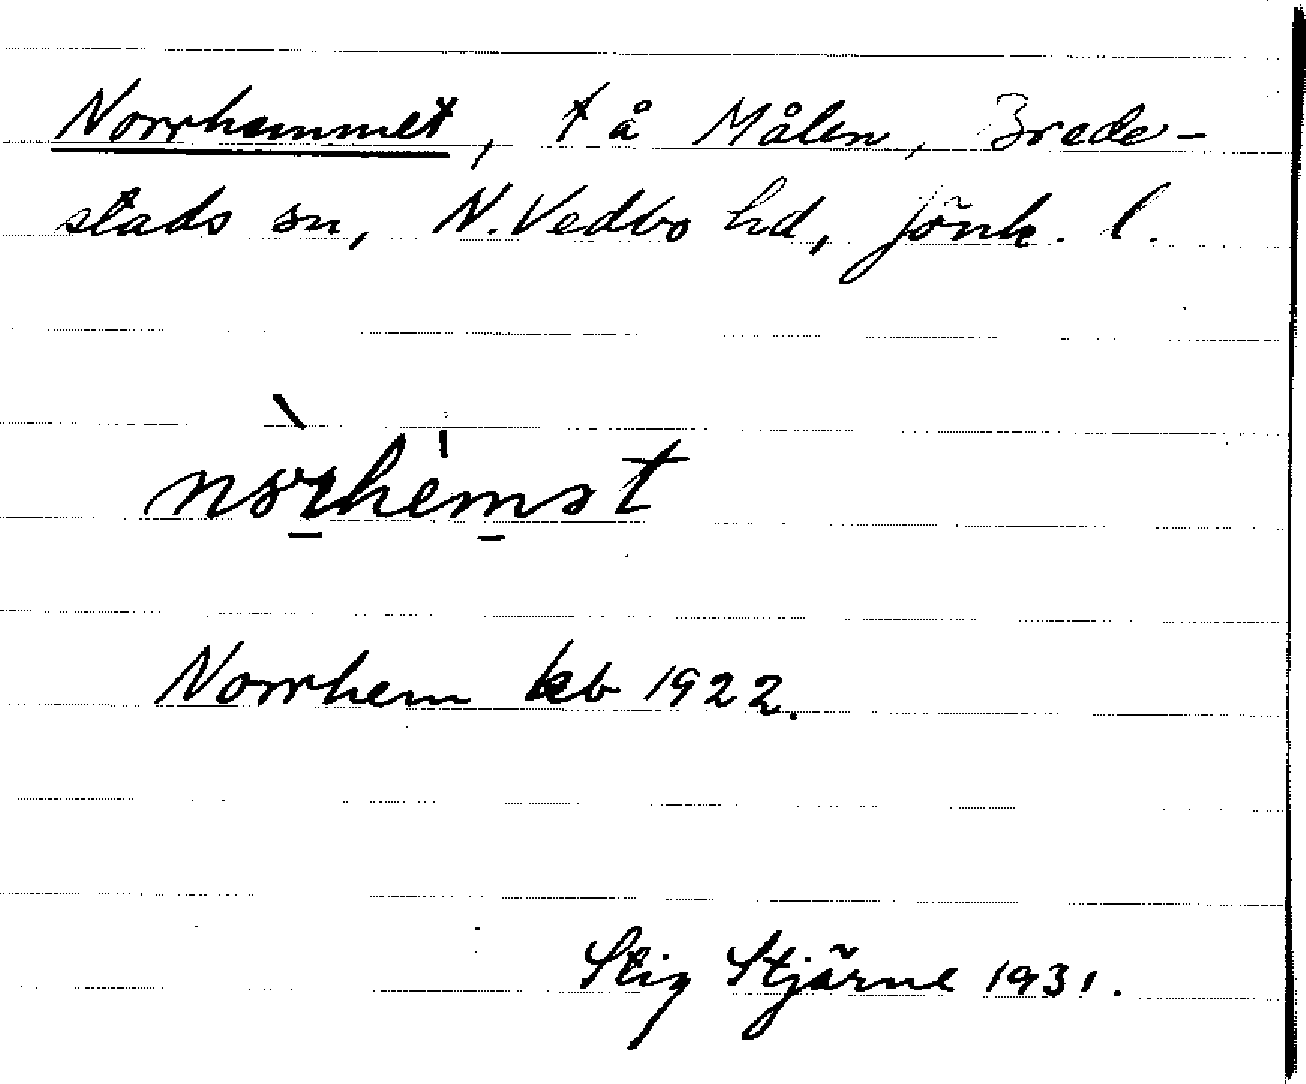 Norrhemmet, t å Målen, Brede-
stads sn, N. Vedbo hd, Jönk. l.
Norrhem kb 1922.
Stig Stjärne 1931.